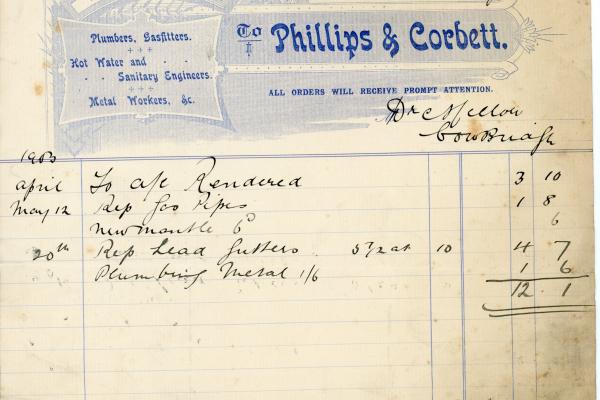 Plumbers, Gasfitters.
Hot Water and
Sanitary Engineers.
Metal Workers, &c.
To Phillips & Corbett.
ALL ORDERS WILL RECEIVE PROMPT ATTENTION.
Dr C Mellow
Cowbridge
1903
april To a/c Rendered 3 10
May 12 Rep Gas Pipes 1 8
new mantle 6d 6
20th Rep Lead Gutters 5 1/2 at 10 4 7
Plumbing Metal 1/6 1 6
12 . 1